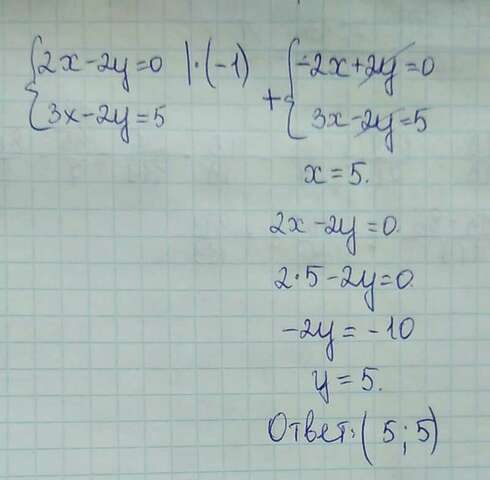 2x-2y=0 |·(-1)
3x-2y=5
-2x+2y=0
+
3x-2y=5
x=5.
2x-2y=0.
2·5-2y=0.
-2y=-10
y=5.
Ответ:(5;5)